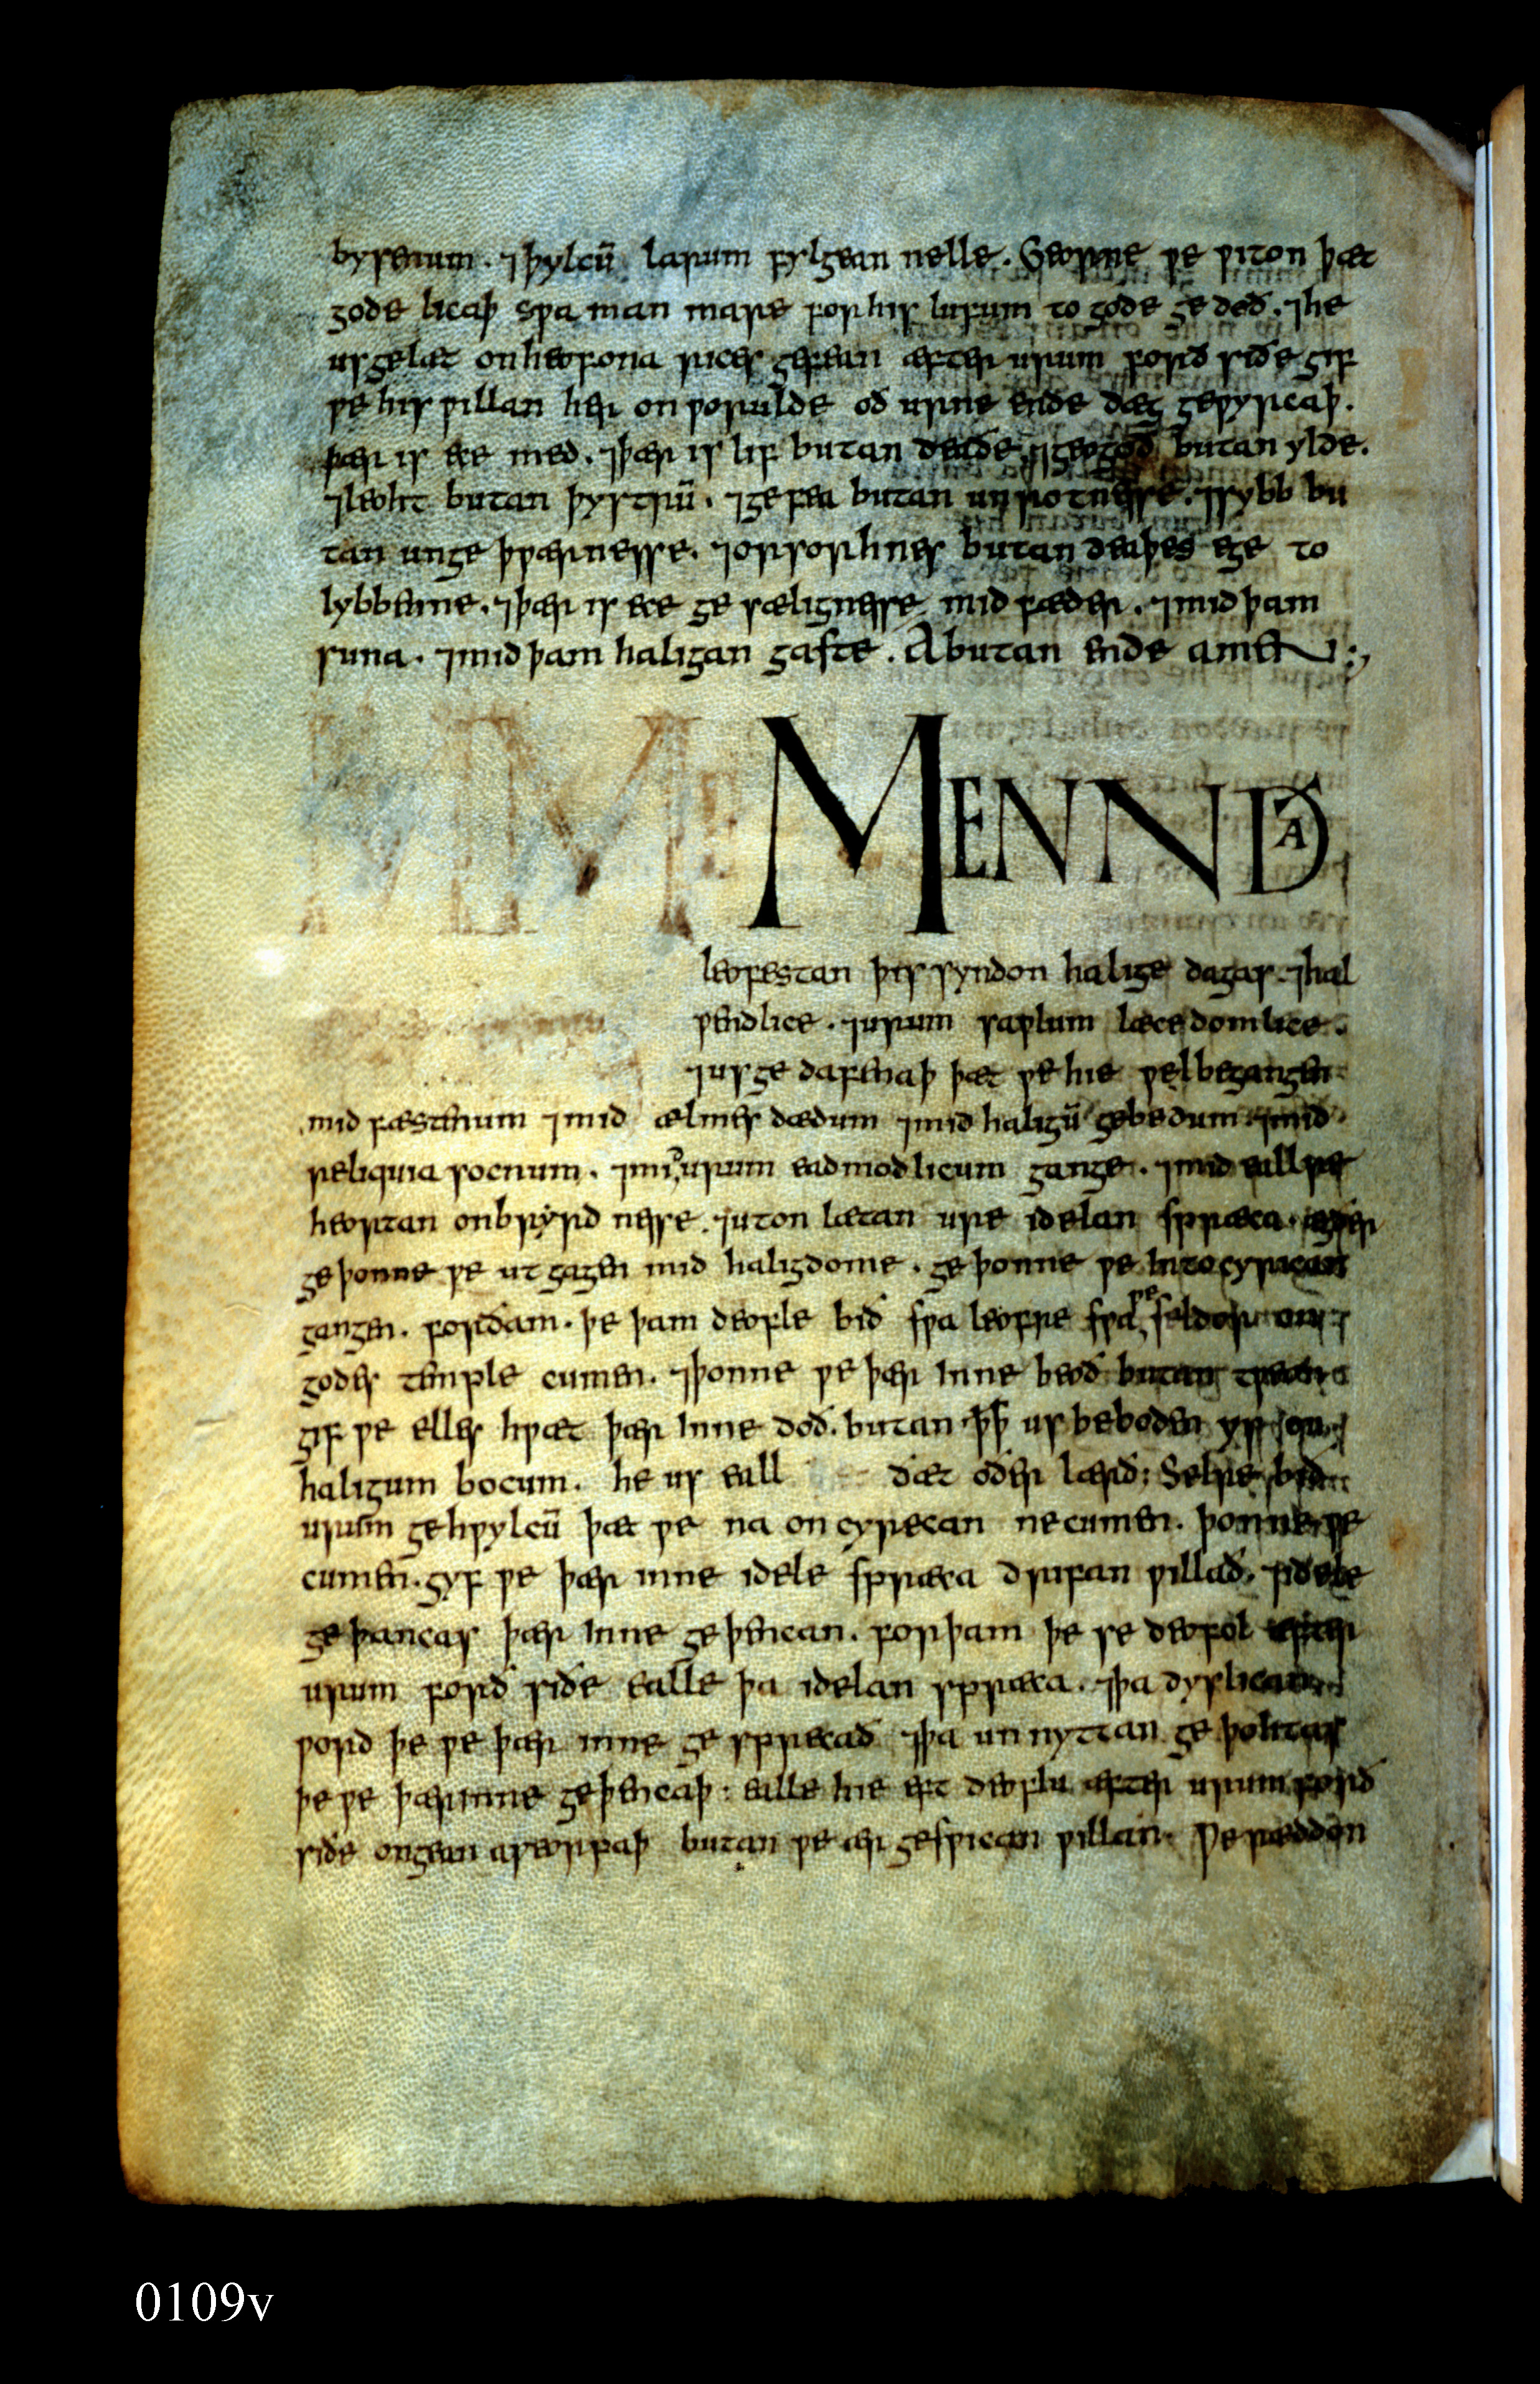 bysenum. ⁊ þylcū larum fylgean nelle. Georne ƿe ƿiton þæt
gode licaþ sƿa man mare for his lufum to gode ge deð. ⁊he
us gelæt on heofona rices gefean æfter urum forð siðe gif
ƿe his ƿillan her on ƿorulde oð urne ende dæg geƿyrcaþ.
þær is ece med. ⁊þær is lif butan deaðe. ⁊geogoð butan ylde.
⁊leoht butan þystrū. ⁊gefea butan unrotnesse. ⁊sybb bu
tan unge þƿærnesse. ⁊orsorhnes butan deaþes ege to
lybbenne. ⁊þær is ece ge sælignesse mid fæder. ⁊mid þam
suna. ⁊mid þam haligan gaste. A butan ende amen:,
MENN ÐA
leofestan þis syndon halige dagas. ⁊hal
ƿendlice. ⁊urum saƿlum læcedomlice.
⁊us ge dafenaþ þæt ƿe hie ƿel begangen
mid fæstenum ⁊mid ælmes dædum ⁊mid haligū gebedum ⁊mid
reliquia socnum. ⁊mid urum eadmodlicum gange. ⁊mid ealre
heortan onbryrd nesse. ⁊uton lætan ure idelan spræca. ægþer
ge þonne ƿe ut gagen mid haligdome. ge þonne ƿe into cyricean
gangen. forðam. þe þam deofle bið sƿa leofre sƿa ƿe seldor on
godes temple cumen. ⁊þonne ƿe þær inne beoð butan tƿeon
gif ƿe elles hƿæt þær inne doð. butan þæt us beboden ys on
haligum bocum. he us eall ðæt oðer lærð: Selre bið
urum gehƿylcū þæt ƿe na on cyrecan ne cumen. þonne ƿe
cumen. gyf ƿe þær inne idele spræca drifan ƿillað. ⁊idele
geþancas þær inne ge þencan. for þam þe se deofol æfter
urum forð siðe ealle þa idelan spræca. ⁊þa dyslican
ƿord þe ƿe þær inne ge sprecað ⁊þa un nyttan ge þohtas
þe ƿe þær inne geþencaþ: ealle hie eft deoflu æfter urum forð
siðe ongean aƿeorpaþ butan ƿe ær gesƿican ƿillan. Ƿe ræddon
0109v